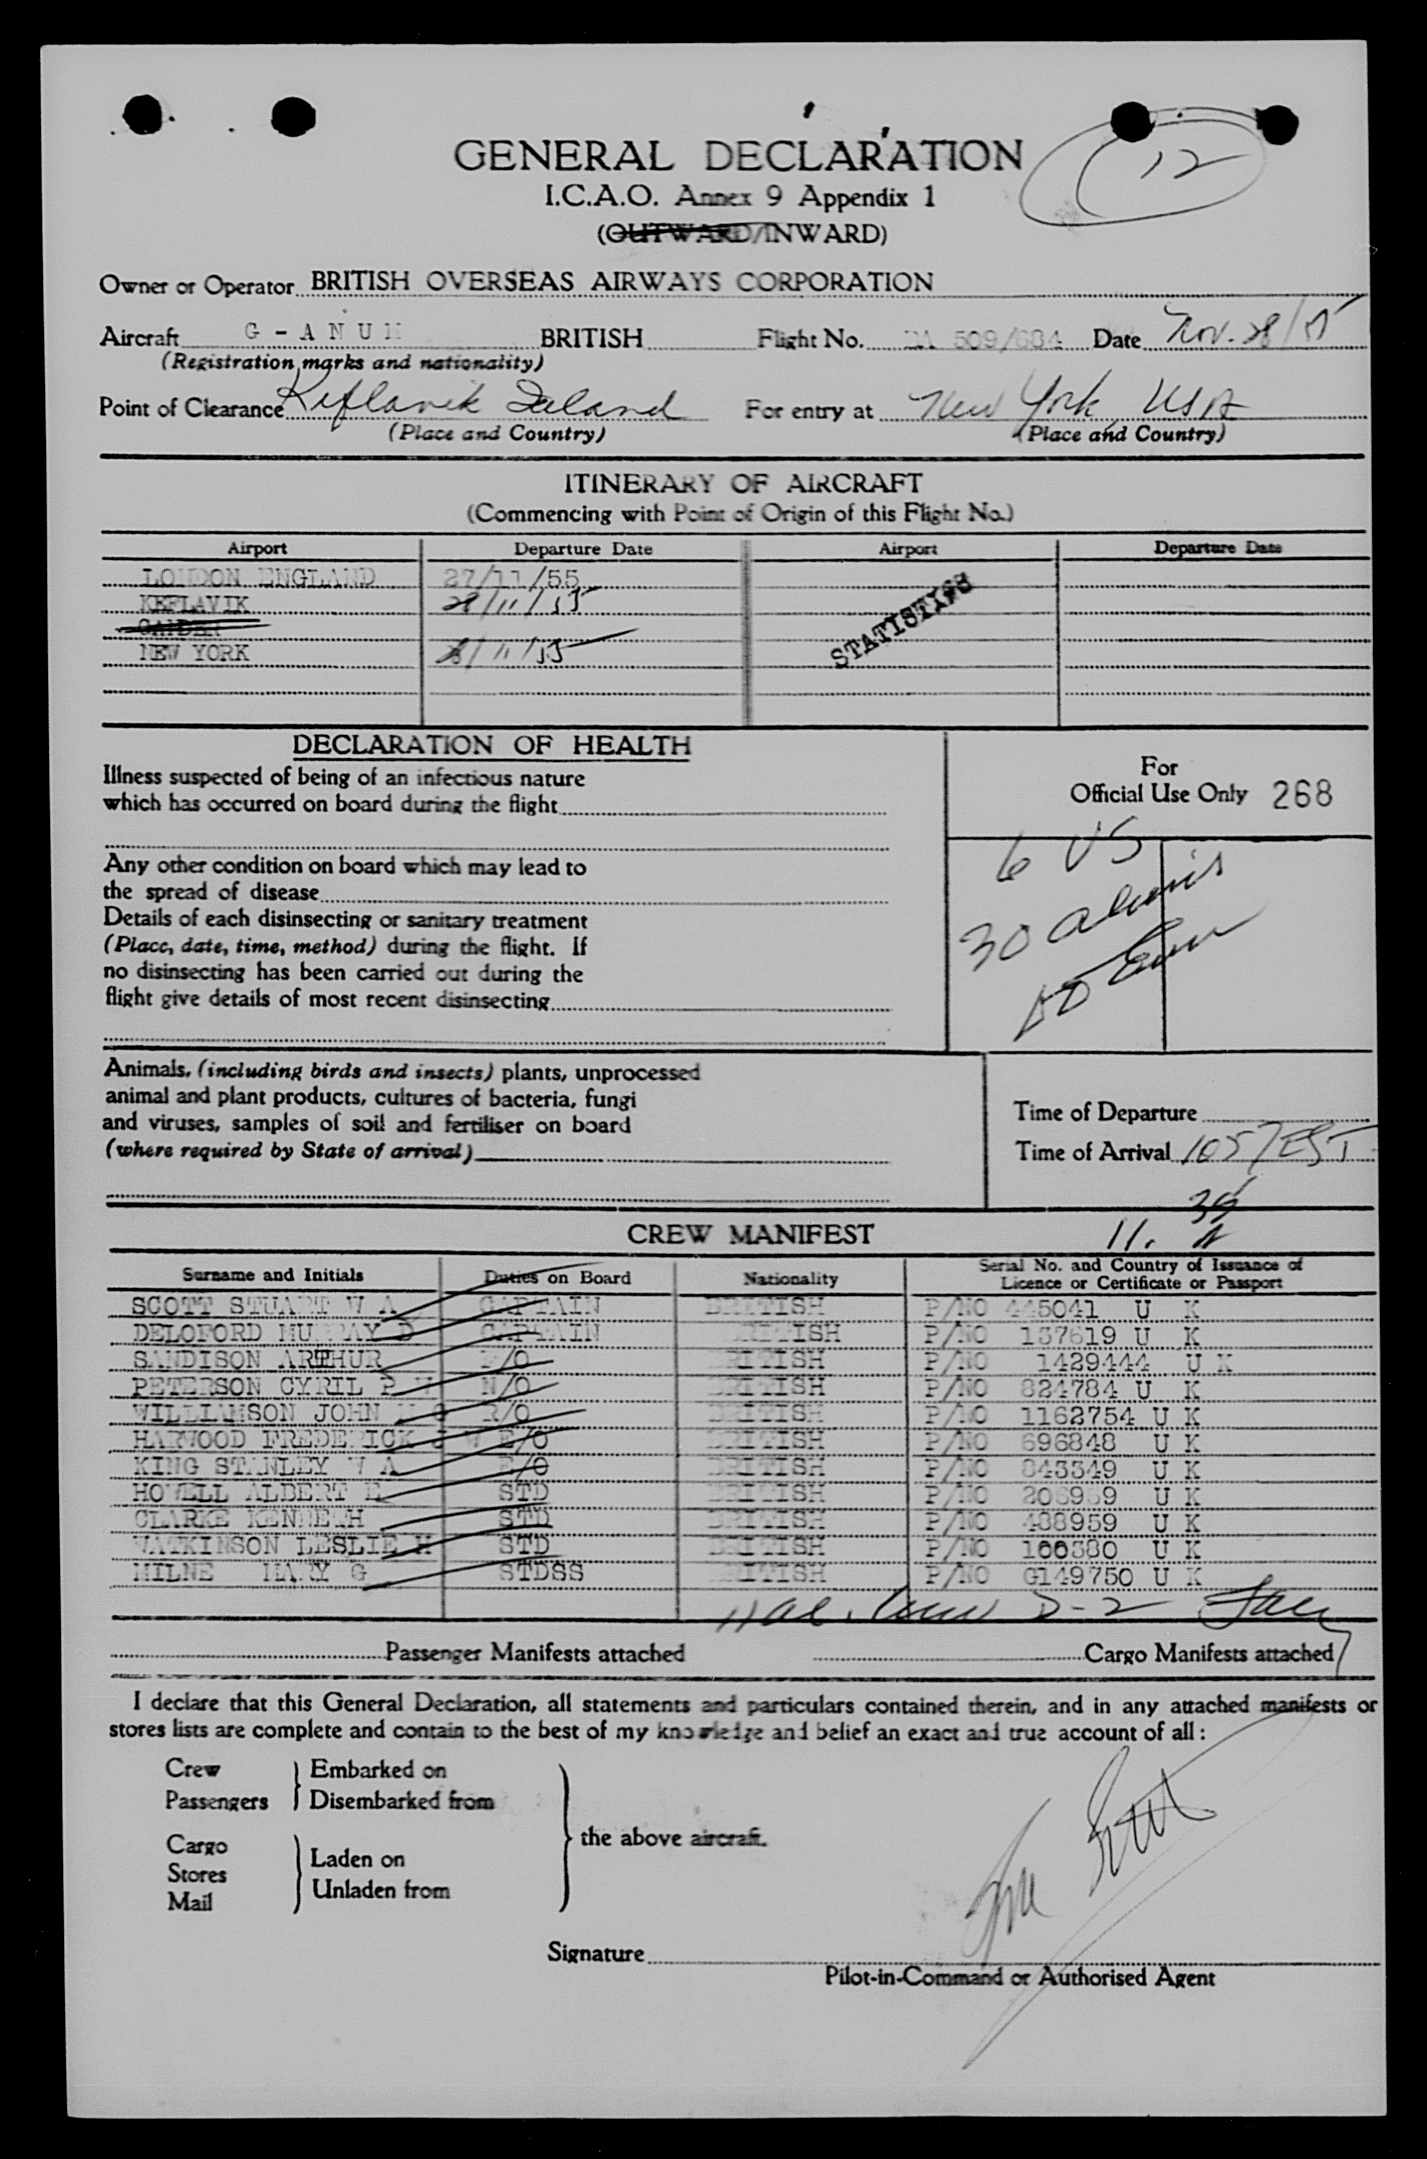 12
GENERAL DECLARATION
I.C.A.O. Annex 9 Appendix 1
(OUTWARD/INWARD)
Owner or Operator BRITISH OVERSEAS AIRWAYS CORPORATION
Aircraft G - A N U M BRITISH Flight No. BA 509/684 Date Nov. 28/55
(Registration marks and nationality)
Point of Clearance Keflavik Iceland For entry at New York USA
(Place and Country) (Place and Country)
ITINERARY OF AIRCRAFT
(Commencing with Point of Origin of this Flight No.)
Airport Departure Date Airport Departure Date
LONDON ENGLAND 27/11/55
KEFLAVIK 28/11/55
GANDER
NEW YORK 28/11/55
STATISTICS
DECLARATION OF HEALTH
Illness suspected of being of an infectious nature
which has occurred on board during the flight
For
Official Use Only 268
Any other condition on board which may lead to
the spread of disease
Details of each disinsecting or sanitary treatment
(Place, date, time, method) during the flight. If
no disinsecting has been carried out during the
flight give details of most recent disinsecting
6 US
30 aliens
Animals, (including birds and insects) plants, unprocessed
animal and plant products, cultures of bacteria, fungi
and viruses, samples of soil and fertiliser on board
(where required by State of arrival)
Time of Departure
Time of Arrival 1057 EST
CREW MANIFEST
11.
Surname and Initials Duties on Board Nationality Serial No. and Country of Issuance of Licence or Certificate or Passport
SCOTT STUART W A CAPTAIN BRITISH P/NO 445041 U K
DELOFORD MURRAY D CAPTAIN BRITISH P/NO 137619 U K
SANDISON ARTHUR F/O BRITISH P/NO 1429444 U K
PETERSON CYRIL P W N/O BRITISH P/NO 824784 U K
WILLIAMSON JOHN R/O BRITISH P/NO 1162754 U K
HARWOOD FREDERICK J W E/O BRITISH P/NO 696848 U K
KING STANLEY W A E/O BRITISH P/NO 843349 U K
HOWELL ALBERT E STD BRITISH P/NO U K
CLARKE KENNETH STD BRITISH P/NO 488959 U K
WATKINSON LESLIE H STD BRITISH P/NO 100380 U K
MILNE MARY G STDSS BRITISH P/NO G149750 U K
D-2
Passenger Manifests attached Cargo Manifests attached
I declare that this General Declaration, all statements and particulars contained therein, and in any attached manifests or
stores lists are complete and contain to the best of my knowledge and belief an exact and true account of all :
Crew Embarked on
Passengers Disembarked from
the above aircraft.
Cargo
Stores Laden on
Mail Unladen from
Signature
Pilot-in-Command or Authorised Agent